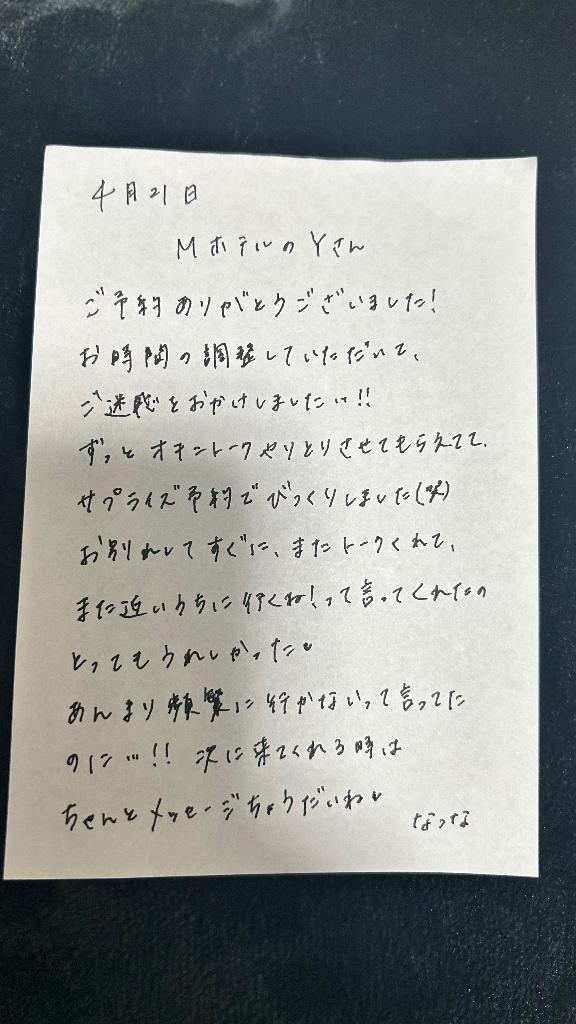 4月21日
Mホテルの Yさん
ご予約ありがとうございました!
お時間の調整していただいて、
ご迷惑をおかけしました…!!
ずっと オキニトークやりとりさせてもらえてて、
サプライズ予約でびっくりしました(笑)
お別れしてすぐに、またトークくれて、
また近いうちに行くね!って言ってくれたの
とってもうれしかった♥
あんまり頻繁に行かないって言ってた
のに…!! 次に来てくれる時は
ちゃんとメッセージちょうだいね♥
なつな